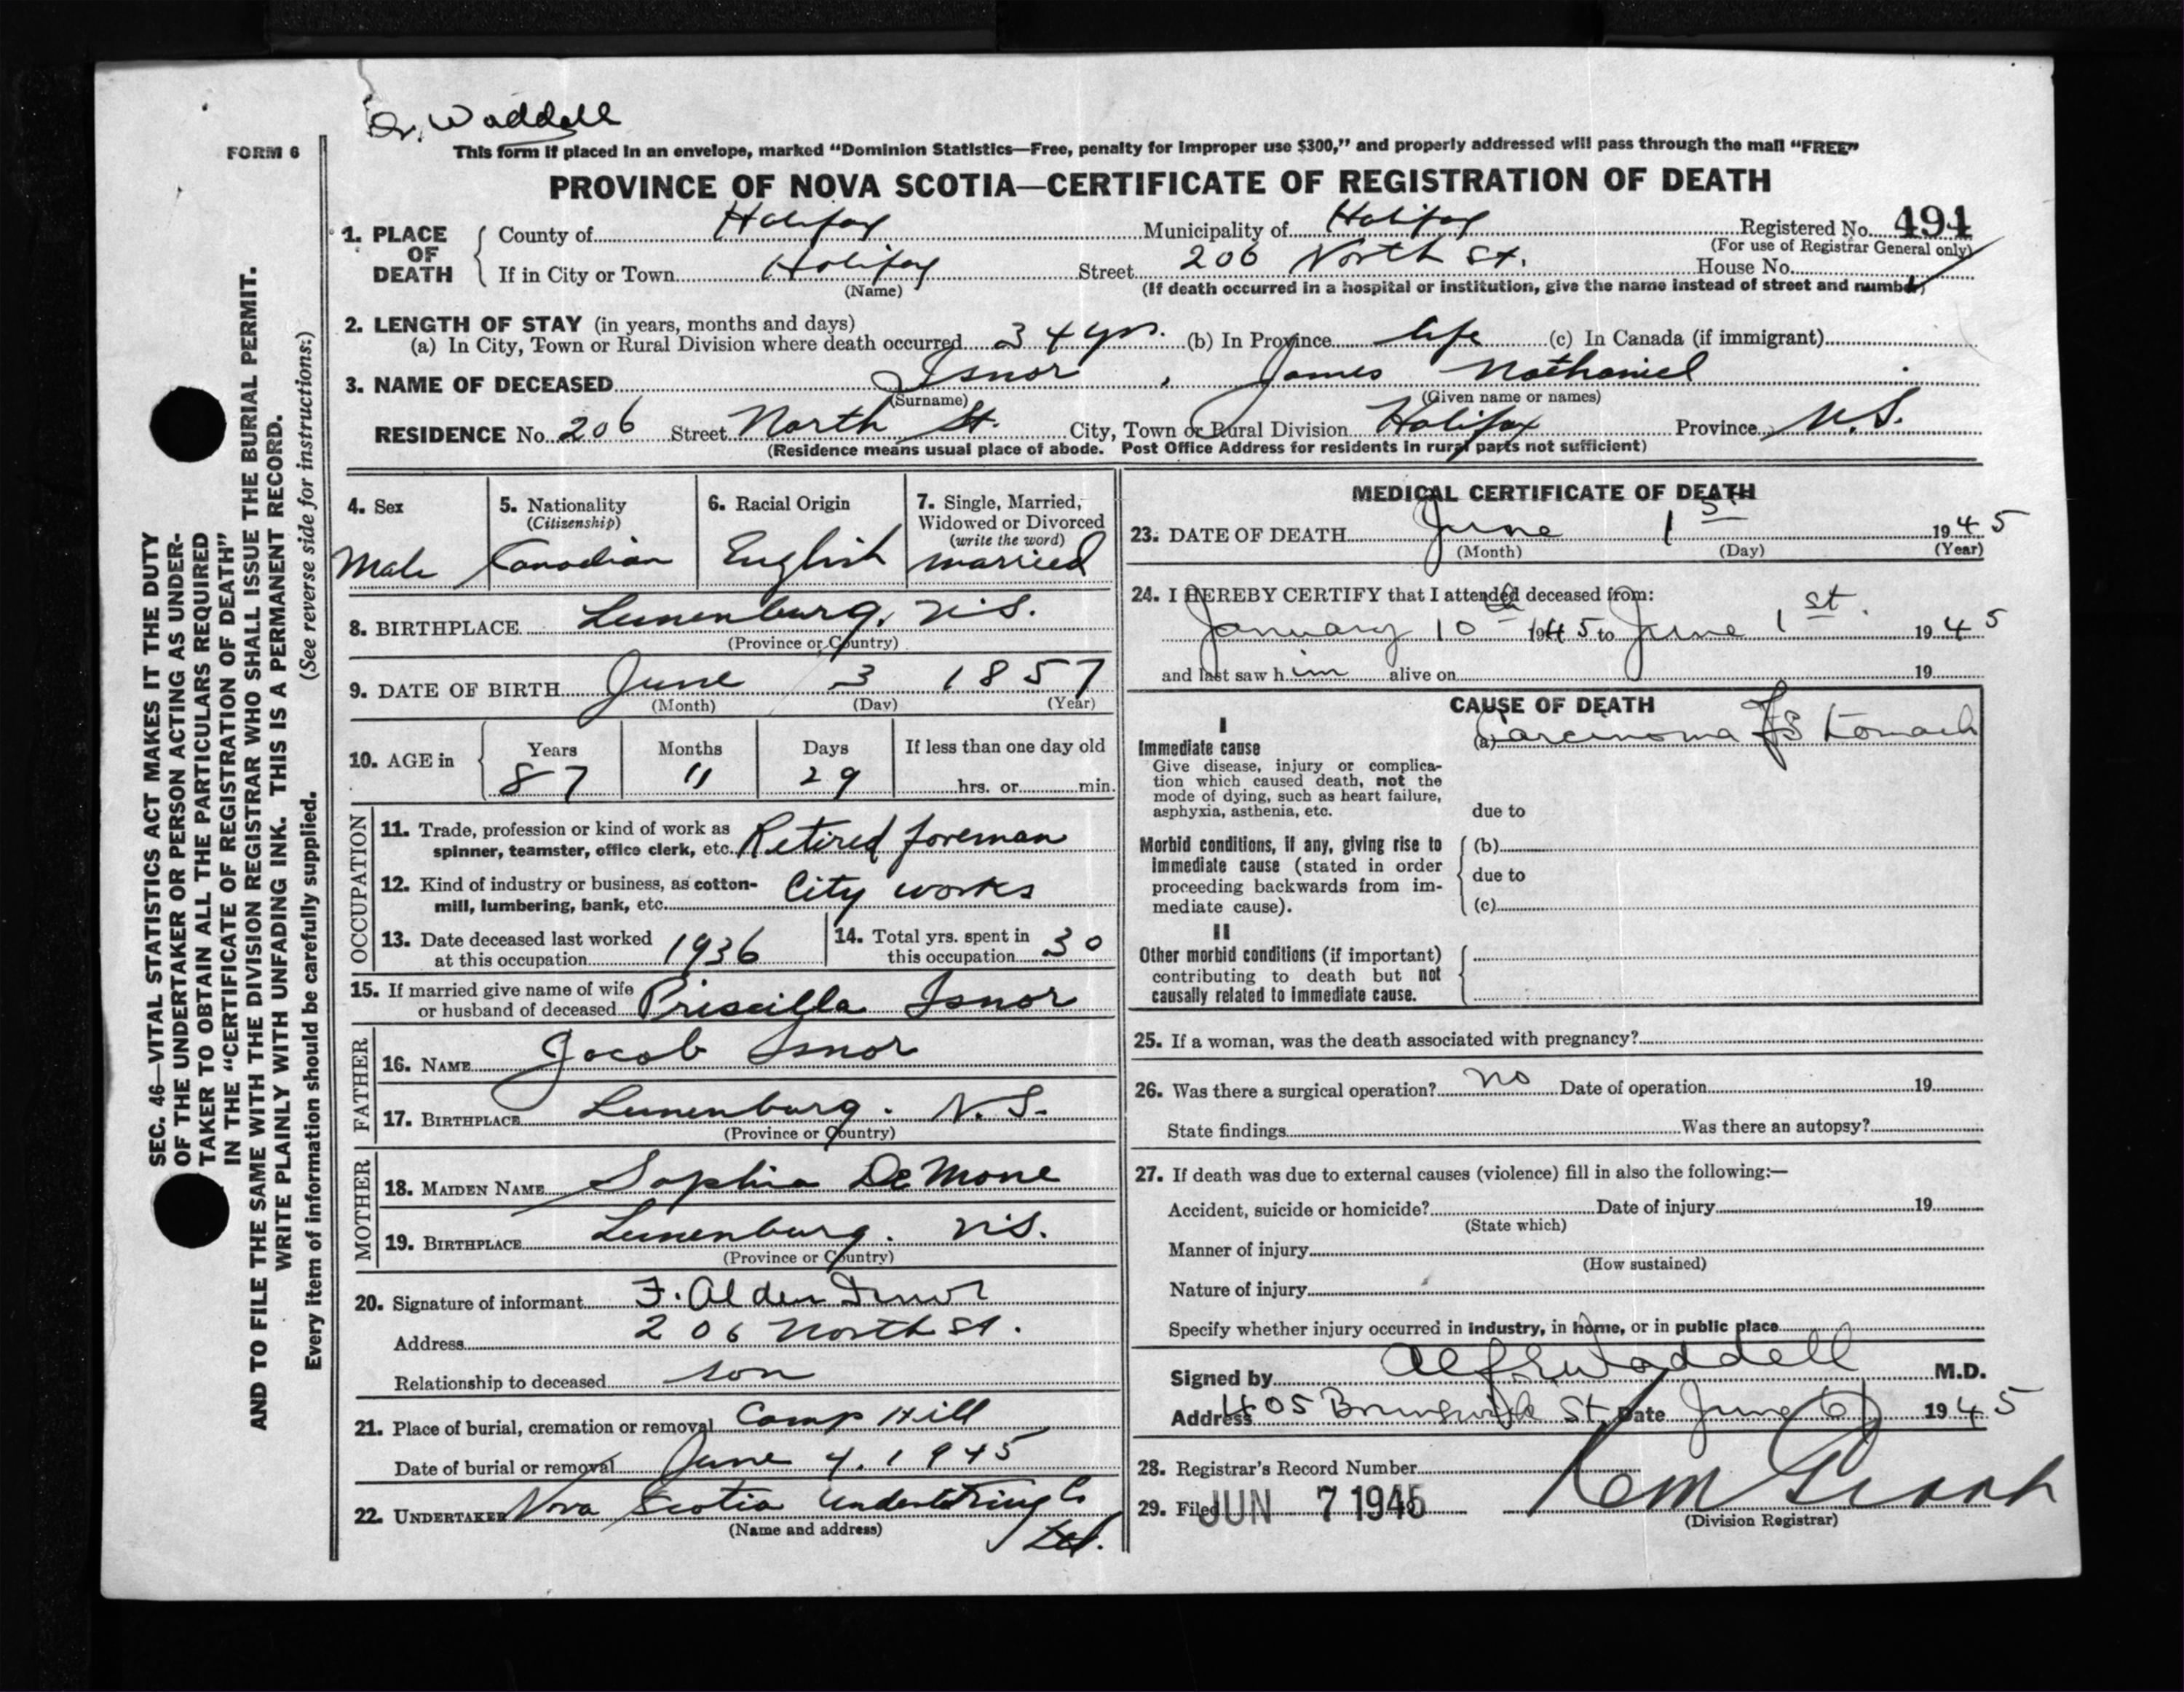 Dr. Waddell
FORM 6
This form if placed in an envelope, marked “Dominion Statistics—Free, penalty for improper use $300,” and properly addressed will pass through the mail “FREE”
PROVINCE OF NOVA SCOTIA—CERTIFICATE OF REGISTRATION OF DEATH
1. PLACE OF DEATH County of Halifax Municipality of Halifax Registered No. 494
(For use of Registrar General only)
If in City or Town Halifax Street 206 North St. House No.
(Name) (If death occurred in a hospital or institution, give the name instead of street and number)
2. LENGTH OF STAY (in years, months and days)
(a) In City, Town or Rural Division where death occurred 34 yrs. (b) In Province life (c) In Canada (if immigrant)
3. NAME OF DECEASED Isnor, James Nathaniel
(Surname) (Given name or names)
RESIDENCE No. 206 Street North St. City, Town or Rural Division Halifax Province N.S.
(Residence means usual place of abode. Post Office Address for residents in rural parts not sufficient)
4. Sex
Male
5. Nationality
(Citizenship)
Canadian
6. Racial Origin
English
7. Single, Married,
Widowed or Divorced
(write the word)
married
8. BIRTHPLACE Lunenburg, N.S.
(Province or Country)
9. DATE OF BIRTH June 3 1857
(Month) (Day) (Year)
10. AGE in Years Months Days If less than one day old
87 11 29 hrs. or min.
OCCUPATION
11. Trade, profession or kind of work as
spinner, teamster, office clerk, etc. Retired foreman
12. Kind of industry or business, as cotton-
mill, lumbering, bank, etc. City works
13. Date deceased last worked
at this occupation 1936
14. Total yrs. spent in
this occupation 30
15. If married give name of wife
or husband of deceased Priscilla Isnor
FATHER
16. NAME Jacob Isnor
17. BIRTHPLACE Lunenburg. N.S.
(Province or Country)
MOTHER
18. MAIDEN NAME Sophia DeMone
19. BIRTHPLACE Lunenburg. N.S.
(Province or Country)
20. Signature of informant F. Alden Isnor
Address 206 North St.
Relationship to deceased son
21. Place of burial, cremation or removal Camp Hill
Date of burial or removal June 4, 1945
22. UNDERTAKER Nova Scotia Undertaking Co
(Name and address) Ltd.
MEDICAL CERTIFICATE OF DEATH
23. DATE OF DEATH June 1st 1945
(Month) (Day) (Year)
24. I HEREBY CERTIFY that I attended deceased from:
January 10th 1945 to June 1st. 1945
and last saw him alive on 19
CAUSE OF DEATH
I
Immediate cause (a) Carcinoma of Stomach
Give disease, injury or complica-
tion which caused death, not the
mode of dying, such as heart failure,
asphyxia, asthenia, etc. due to
Morbid conditions, if any, giving rise to (b)
immediate cause (stated in order
proceeding backwards from im- due to
mediate cause). (c)
II
Other morbid conditions (if important)
contributing to death but not
causally related to immediate cause.
25. If a woman, was the death associated with pregnancy?
26. Was there a surgical operation? no Date of operation 19
State findings Was there an autopsy?
27. If death was due to external causes (violence) fill in also the following:—
Accident, suicide or homicide? Date of injury 19
(State which)
Manner of injury
(How sustained)
Nature of injury
Specify whether injury occurred in industry, in home, or in public place
Signed by Alf E Waddell M.D.
Address 405 Brunswick St, Date June 6 1945
28. Registrar's Record Number
29. Filed JUN 7 1945
(Division Registrar)
SEC. 46—VITAL STATISTICS ACT MAKES IT THE DUTY
OF THE UNDERTAKER OR PERSON ACTING AS UNDER-
TAKER TO OBTAIN ALL THE PARTICULARS REQUIRED
IN THE “CERTIFICATE OF REGISTRATION OF DEATH”
AND TO FILE THE SAME WITH THE DIVISION REGISTRAR WHO SHALL ISSUE THE BURIAL PERMIT.
WRITE PLAINLY WITH UNFADING INK. THIS IS A PERMANENT RECORD.
Every item of information should be carefully supplied. (See reverse side for instructions:)